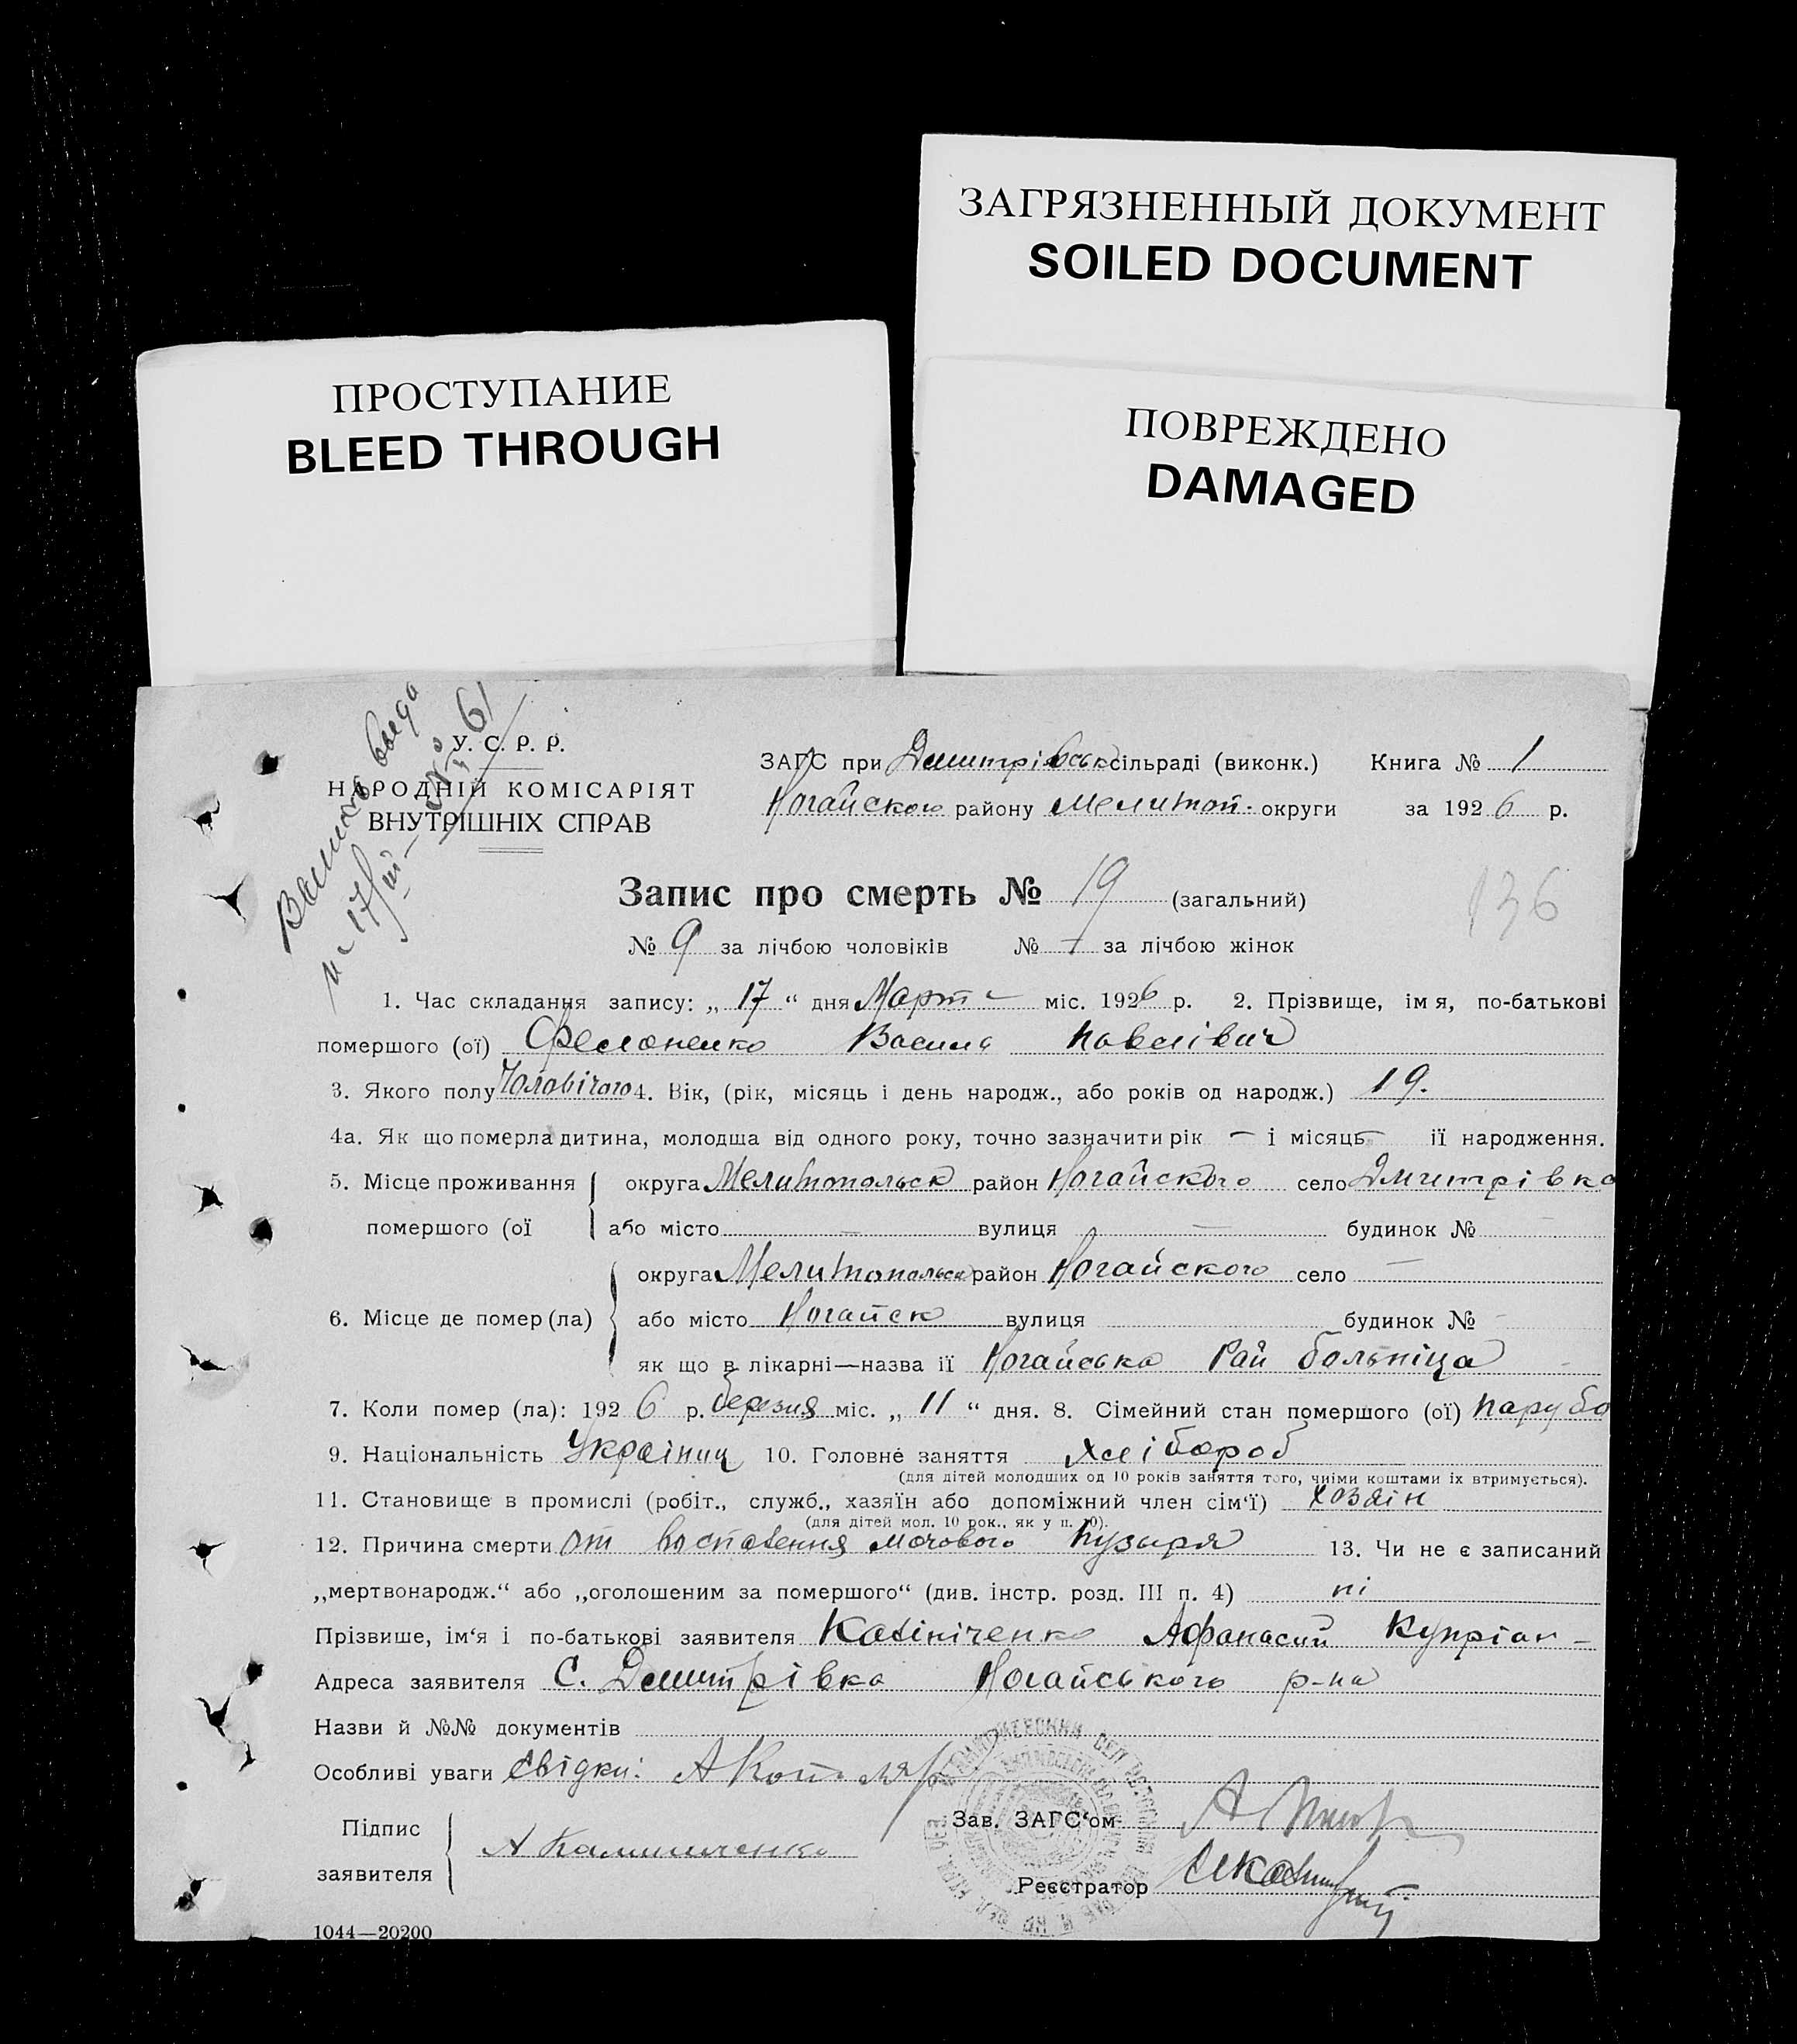 ЗАГРЯЗНЕННЫЙ ДОКУМЕНТ
SOILED DOCUMENT
ПРОСТУПАНИЕ
BLEED THROUGH
ПОВРЕЖДЕНО
DAMAGED
№ 61
У. С. Р. Р.
НАРОДНІЙ КОМІСАРІЯТ
ВНУТРІШНІХ СПРАВ
ЗАГС при Дмитрівськ сільраді (виконк.) Книга № 1
Ногайского району Мелитоп. округи за 1926 р.
Запис про смерть № 19 (загальний)
136
№ 9 за лічбою чоловіків № — за лічбою жінок
1. Час складання запису: „ 17 “ дня Март міс. 1926 р. 2. Прізвище, імя, по-батькові
помершого (ої) Филоненко Василь Павлівич
3. Якого полу Чоловічого 4. Вік, (рік, місяць і день народж., або років од народж.) 19.
4а. Як що померла дитина, молодша від одного року, точно зазначити рік — і місяць — її народження.
5. Місце проживання округа Мелитопольск район Ногайского село Дмитрівка
помершого (ої або місто — вулиця — будинок №
округа Мелитопольск район Ногайского село —
6. Місце де помер (ла) або місто Ногайск вулиця будинок №
як що в лікарні—назва її Ногайська Рай больніца
7. Коли помер (ла): 1926 р. березня міс. „ 11 “ дня. 8. Сімейний стан помершого (ої) парубо
9. Національність Українец 10. Головне заняття хлібороб
(для дітей молодших од 10 років заняття того, чиїми коштами їх втримується).
11. Становище в промислі (робіт., служб., хазяїн або допоміжний член сім‘ї) хозяін
(для дітей мол. 10 рок., як у п. 10).
12. Причина смерти от воспаления мочового пузыря 13. Чи не є записаний
„мертвонародж.“ або „оголошеним за помершого“ (див. інстр. розд. III п. 4) ні
Прізвише, ім‘я і по-батькові заявителя Калініченко Афанасий Купріан —
Адреса заявителя С. Дмитрівка Ногайського р-на
Назви й №№ документів
Особливі уваги Свідки: А Котляр
Підпис
заявителя А Калиниченко
Зав. ЗАГС‘ом
Реєстратор
1044—20200